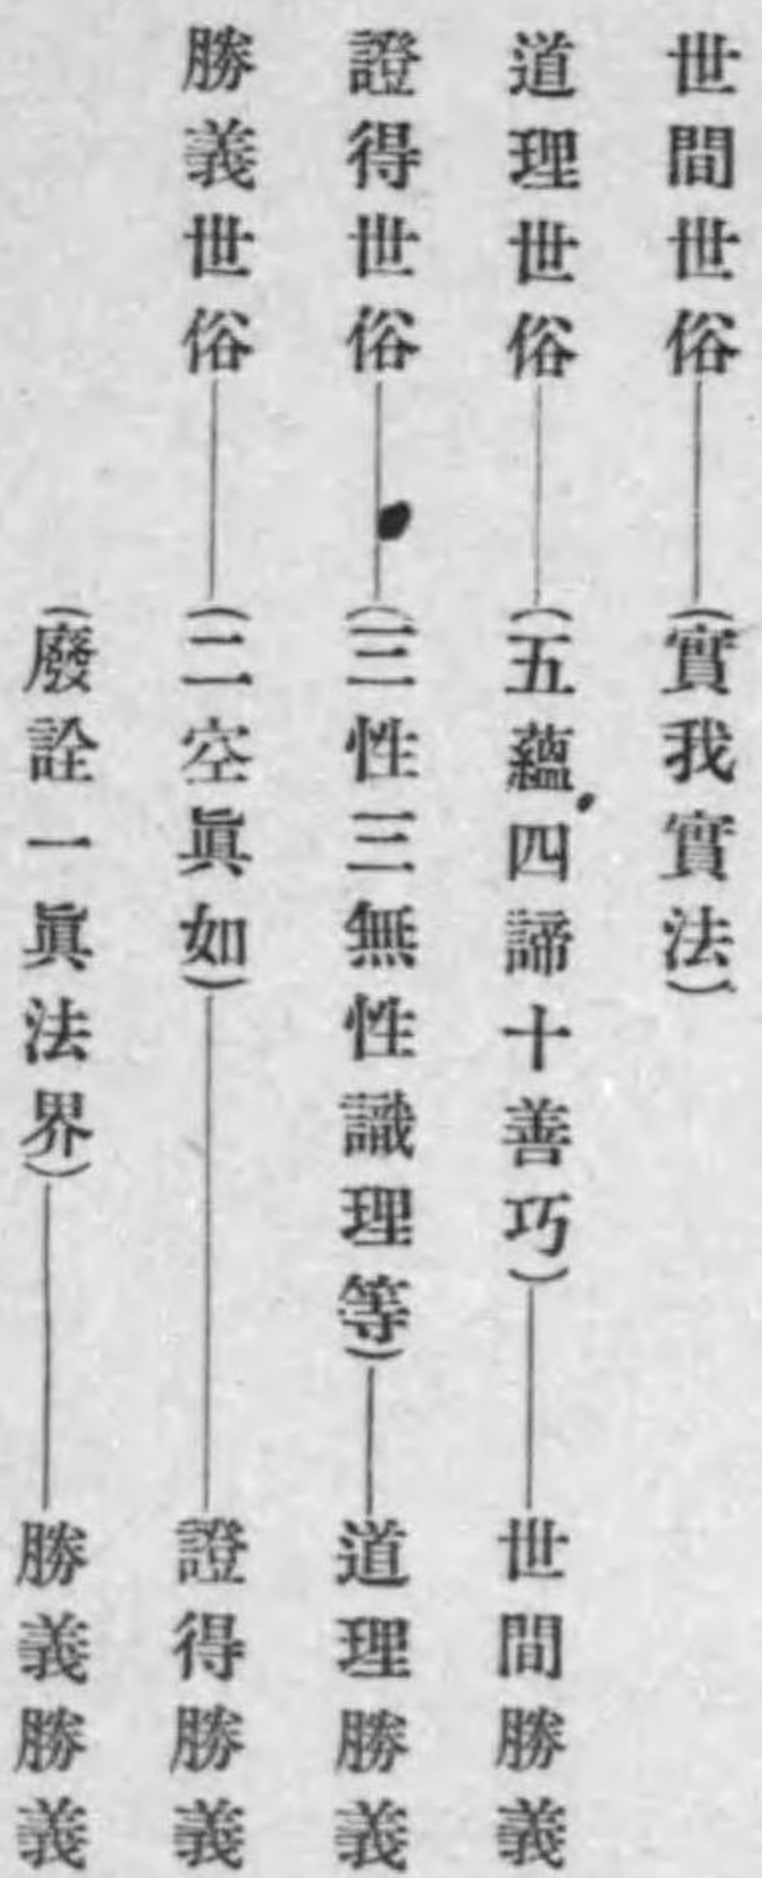 世間世俗——(實我實法)
道理世俗——(五蘊四諦十善巧)——世間勝義
證得世俗——(三性三無性識理等)——道理勝義
勝義世俗——(二空眞如)——證得勝義
(廢詮一眞法界)——勝義勝義